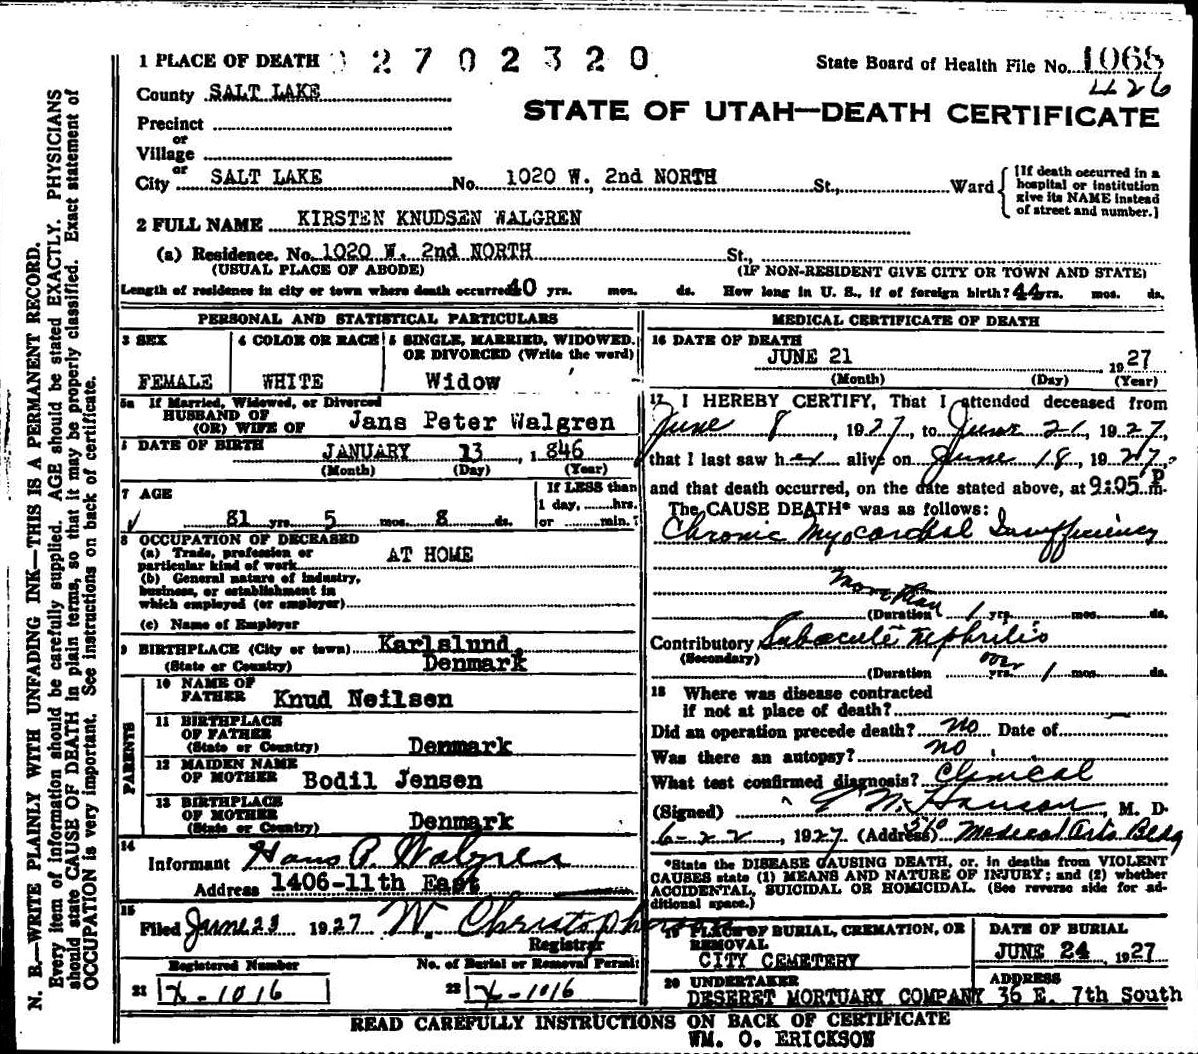 1 PLACE OF DEATH 2 7 0 2 3 2 0
State Board of Health File No. 1068
426
County SALT LAKE
STATE OF UTAH—DEATH CERTIFICATE
Precinct
or
Village
or
City SALT LAKE No. 1020 W. 2nd NORTH St., Ward
[If death occurred in a
hospital or institution
give its NAME instead
of street and number.]
2 FULL NAME KIRSTEN KNUDSEN WALGREN
(a) Residence. No. 1020 W. 2nd NORTH St.,
(USUAL PLACE OF ABODE) (IF NON-RESIDENT GIVE CITY OR TOWN AND STATE)
Length of residence in city or town where death occurred 40 yrs. mos. ds. How long in U. S., if of foreign birth? 44 yrs. mos. ds.
PERSONAL AND STATISTICAL PARTICULARS
3 SEX
FEMALE
4 COLOR OR RACE
WHITE
5 SINGLE, MARRIED, WIDOWED,
OR DIVORCED (Write the word)
Widow
5a If Married, Widowed, or Divorced
HUSBAND OF
(OR) WIFE OF Jans Peter Walgren
DATE OF BIRTH JANUARY 13, 1846
(Month) (Day) (Year)
7 AGE
81 yrs. 5 mos. 8 ds.
If LESS than
1 day, hrs.
or min.?
8 OCCUPATION OF DECEASED
(a) Trade, profession or
particular kind of work AT HOME
(b) General nature of industry,
business, or establishment in
which employed (or employer)
(c) Name of Employer
9 BIRTHPLACE (City or town) Karlslund,
(State or Country) Denmark
PARENTS
10 NAME OF
FATHER Knud Neilsen
11 BIRTHPLACE
OF FATHER
(State or Country) Denmark
12 MAIDEN NAME
OF MOTHER Bodil Jensen
13 BIRTHPLACE
OF MOTHER
(State or Country) Denmark
14
Informant Hans P. Walgren
Address 1406-11th East
15
Filed June 23 1927 W. Christoph
Registrar
Registered Number
21 X-1016
No. of Burial or Removal Permit
22 X-1016
MEDICAL CERTIFICATE OF DEATH
16 DATE OF DEATH
JUNE 21 1927
(Month) (Day) (Year)
17 I HEREBY CERTIFY, That I attended deceased from
June 8, 1927, to June 21, 1927,
that I last saw her alive on June 18, 1927,
and that death occurred, on the date stated above, at 9:05 P m.
The CAUSE DEATH* was as follows:
Chronic Myocardial Insufficiency
More than
(Duration 1 yrs. mos. ds.
Contributory Subacute Nephritis
(Secondary)
over
(Duration yrs. 1 mos. ds.
18 Where was disease contracted
if not at place of death?
Did an operation precede death? no Date of
Was there an autopsy? no
What test confirmed diagnosis? Clinical
(Signed) M. Hanson, M. D.
6-22, 1927 (Address) Medical Arts Bldg
*State the DISEASE CAUSING DEATH, or, in deaths from VIOLENT
CAUSES state (1) MEANS AND NATURE OF INJURY; and (2) whether
ACCIDENTAL, SUICIDAL OR HOMICIDAL. (See reverse side for ad-
ditional space.)
19 PLACE OF BURIAL, CREMATION, OR
REMOVAL
CITY CEMETERY
DATE OF BURIAL
JUNE 24, 1927
20 UNDERTAKER
DESERET MORTUARY COMPANY
ADDRESS
36 E. 7th South
READ CAREFULLY INSTRUCTIONS ON BACK OF CERTIFICATE
WM. O. ERICKSON
N. B.—WRITE PLAINLY WITH UNFADING INK—THIS IS A PERMANENT RECORD.
Every item of information should be carefully supplied. AGE should be stated EXACTLY. PHYSICIANS
should state CAUSE OF DEATH in plain terms, so that it may be properly classified. Exact statement of
OCCUPATION is very important. See instructions on back of certificate.